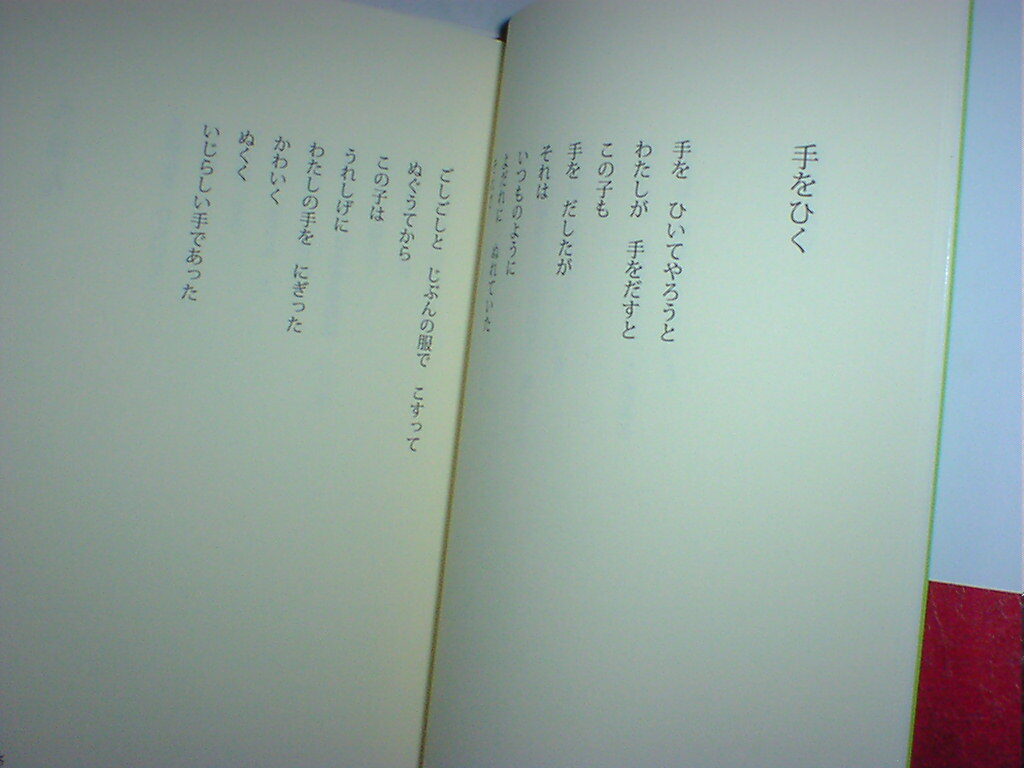 手をひく
手を　ひいてやろうと
わたしが　手をだすと
この子も
手を　だしたが
それは
いつものように
よだれに
ぬれていた
ごしごしと　じぶんの服で　こすって
ぬぐうてから
この子は
うれしげに
わたしの手を　にぎった
かわいく
ぬくく
いじらしい手であった